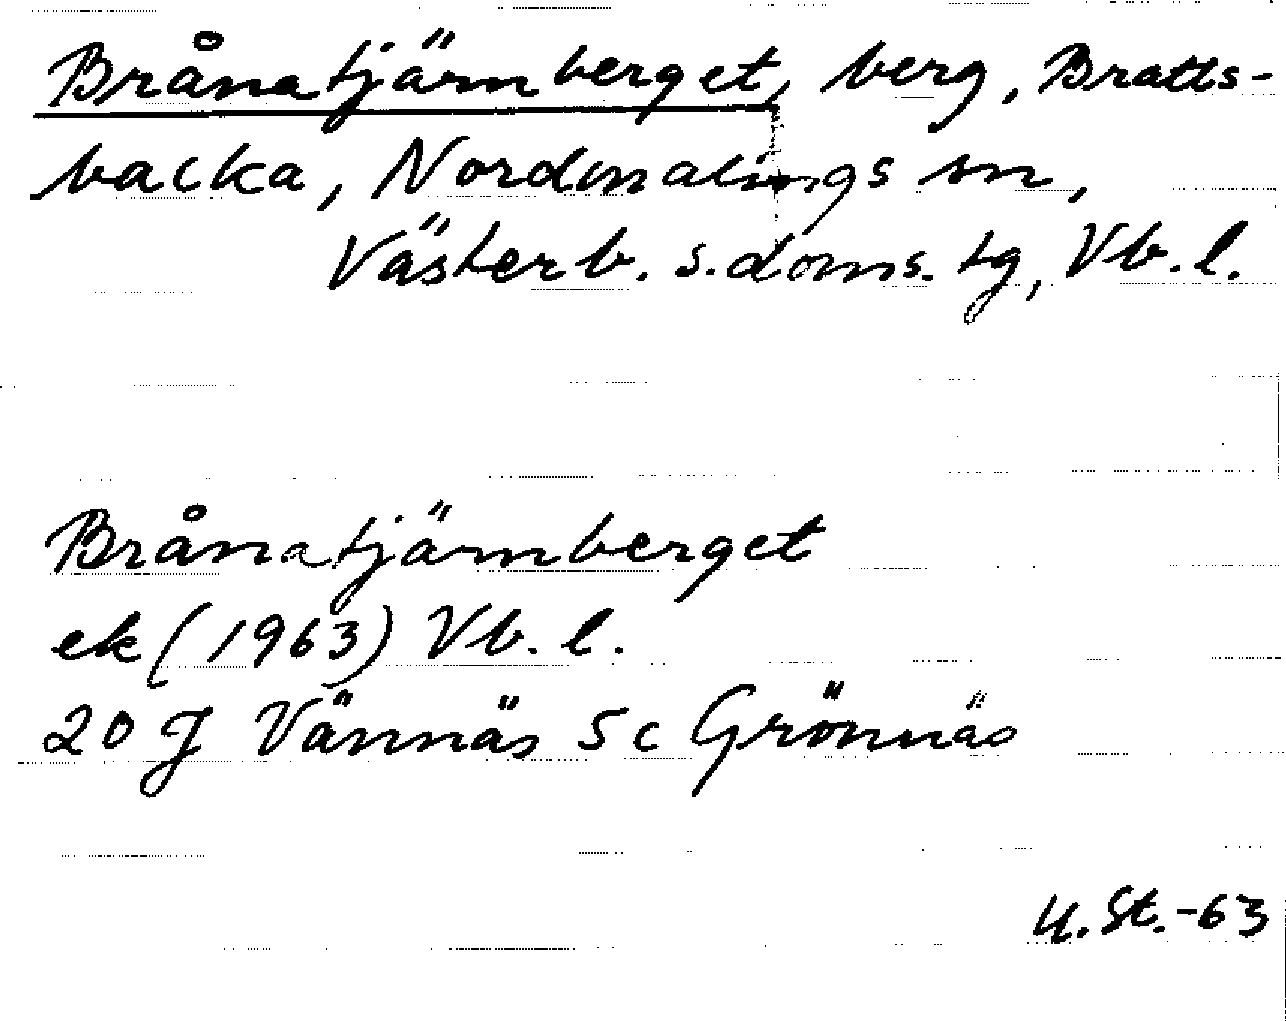 Brånatjärnberget, berg, Bratts-
backa, Nordmalings sn,
Västerb. s. doms. tg, Vb. l.
Brånatjärnberget
ek (1963) Vb. l.
20 J Vännäs 5 c Grönnäs
U. St. -63